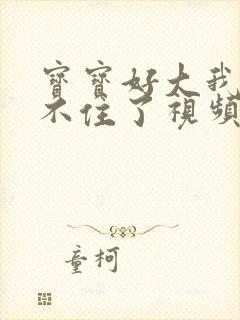 寶寶好大我
不住了視頻
童柯